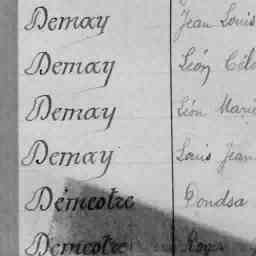 Demay Jean Louis
Demay Léon
Demay Léon Marie
Demay Louis Jean
Démeotre
Demeotre Roger